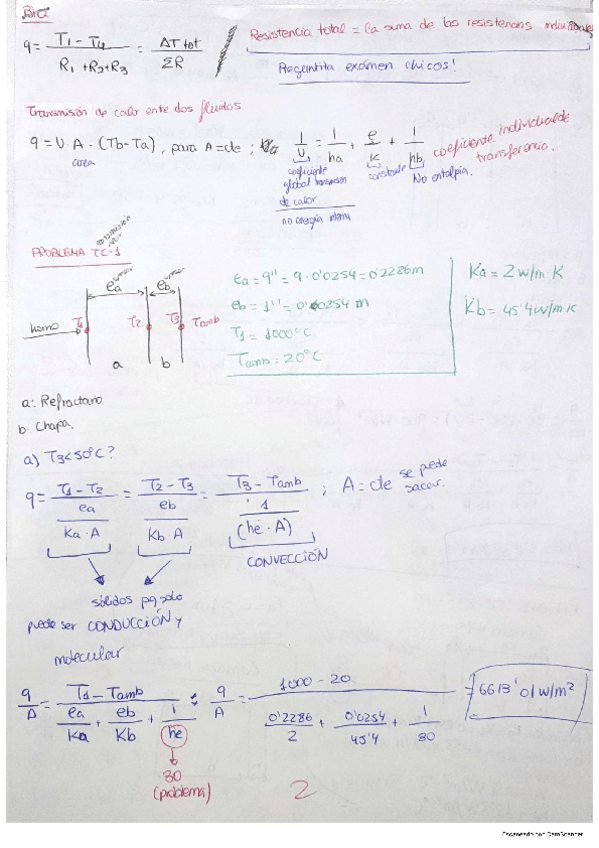 q = T1 - T4 / R1 + R2 + R3 = ΔT tot / ΣR
Resistencia total = la suma de las resistencias individuales
Preguntita exámen chicos!
Transmisión de calor entre dos fluidos
q = U·A·(Tb-Ta), para A=cte; 1/U = 1/ha + e/K + 1/hb coeficiente individual de transferencia.
area
coeficiente global transmisión de calor
constante
No entalpía.
no energía interna
PROBLEMA TC-1
ea eb
T1 T2 T3 Tamb
horno
a b
ea = 9'' = 9·0'0254 = 0'2286 m
eb = 1'' = 0'0254 m
T1 = 1000°C
Tamb = 20°C
Ka = 2 w/m·K
Kb = 45'4 w/m·K
a: Refractario
b: Chapa.
a) T3<50°C?
q = T1 - T2 / ea / Ka·A = T2 - T3 / eb / Kb·A = T3 - Tamb / 1 / (he·A) ; A = cte se puede sacar.
CONVECCIÓN
sólidos pq solo
puede ser CONDUCCIÓN y
molecular
q/A = T1 - Tamb / ea/Ka + eb/Kb + 1/he ; q/A = 1000 - 20 / 0'2286/2 + 0'0254/45'4 + 1/30 = 6613'01 w/m²
30
(problema)
2
Escaneado con CamScanner